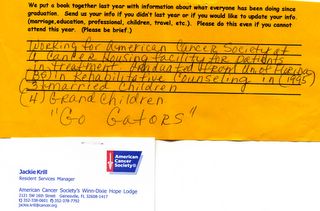 We put a book together last year with information about what everyone has been doing since
graduation. Send us your info if you didn't last year or if you would like to update your info.
(marriage,education, professional, children, travel, etc.). Please do this even if you cannot
attend this year. (Please be brief.)
Working for American Cancer Society at
a Cancer Housing Facility for Patients
in treatment. Graduated from Univ of Florida
(BS) in Rehabilitative Counseling in (1995)
3 married children
(4) Grand Children
"Go Gators"
Jackie Krill
Resident Services Manager
American
Cancer
Society
American Cancer Society's Winn-Dixie Hope Lodge
2121 SW 16th Street Gainesville, FL 32608-1417
jackie.krill@cancer.org